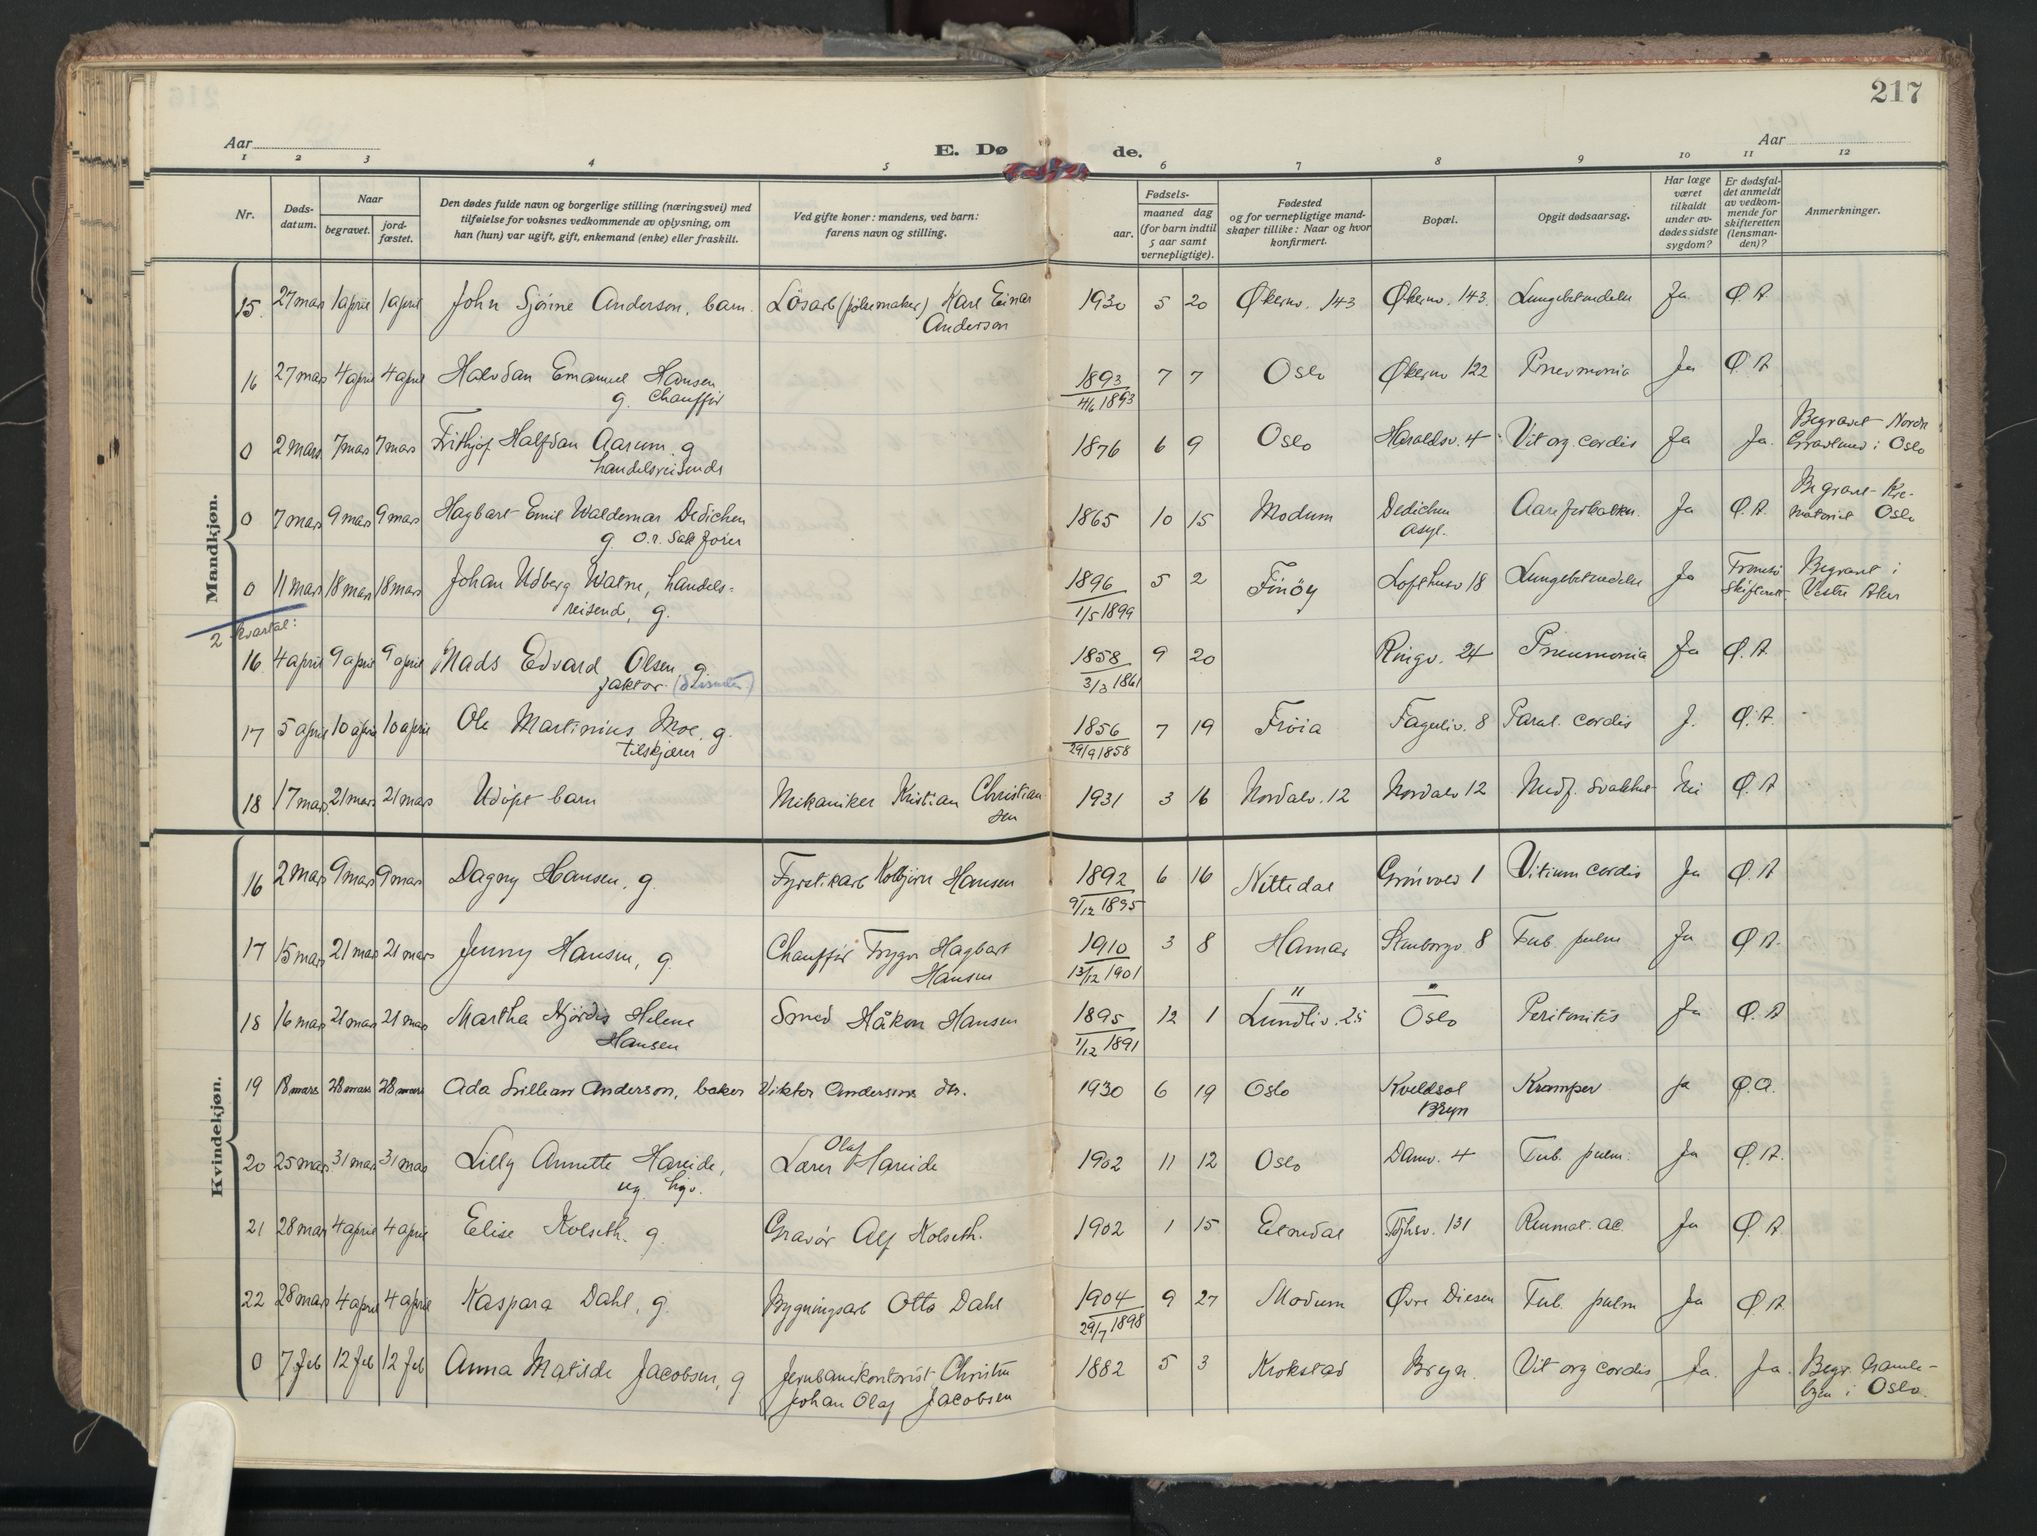 217
Aar
Aar
E. Dø de.
1 2 3 4 5 6 7 8 9 10 11 12
Nr.
Døds-
datum.
Naar
begravet.
jord-
fæstet.
Den dødes fulde navn og borgerlige stilling (næringsvei) med
tilføielse for voksnes vedkommende av oplysning, om
han (hun) var ugift, gift, enkemand (enke) eller fraskilt.
Ved gifte koner: mandens, ved barn:
farens navn og stilling.
Fødsels-
aar.
maaned dag
(for barn indtil
5 aar samt
vernepligtige).
Fødested
og for vernepligtige mand-
skaper tillike: Naar og hvor
konfirmert.
Bopæl.
Opgit dødsaarsag.
Har læge
været
tilkaldt
under av-
dødes sidste
sygdom?
Er dødsfal-
det anmeldt
av vedkom-
mende for
skifteretten
(lensman-
den)?
Anmerkninger.
Mandkjøn.
15. 27 mars 1 april 1 april John Anderson, barn. Løsarb (pølsemaker) Karl Einar 1930 5 20 Økernv. 143 Økernv. 143. Lungebetendelse Ja Ø. A.
Anderson
16 27 mars 4 april 4 april Halvdan Emanuel Hansen 1893 7 7 Oslo Økernv 122 Pnevmonia Ja Ø. A
g. Chauffør 4/6 1893
0 2 mars 7 mars 7 mars Frithjof Halfdan Aarum. g 1876 6 9 Oslo Haraldsv. 4 Vit org. cordis Ja Ja. Begravet Nordre
handelsreisende Gravlund i Oslo
0 7 mars 9 mars 9 mars Hagbart Emil Waldemar Dedichen 1865 10 15 Modum Dedichen Aareforkalkn. Ja Ø. A. Begravet Kre-
g. O.r. Sakfører asyl. matoriet Oslo
0 11 mars 18 mars 18 mars Johan Udberg Watne, handels- 1896 5 2 Finöy Lofthusv 18 Lungebetendelse Ja Tromsø Begravet i
reisende, g. 1/5 1899 Skifterett. Vestre Aker
2 kvartal:
16 4 april 9 april 9 april Mads Edvard Olsen g 1858 9 20 Ringv. 24 Pneumonia Ja Ø. A.
faktor 3/3 1861
17 5 april 10 april 10 april Ole Martinius Moe, g. 1856 7 19 Frøia Fagerliv. 8 Paral. cordis J. Ø. A.
tilskjærer 29/9 1858
18 17 mars 21 mars 21 mars Udöpt barn Mekaniker Kristian Christian 1931 3 16 Nordalv. 12 Nordalv 12 Medf. svakhet Nei Ø. A
sen
Kvindekjøn.
16 2 mars 9 mars 9 mars Dagny Hansen, g. Fyrstikarb Kolbjørn Hansen 1892 6 16 Nittedal Grönvold 1 Vitium cordis Ja Ø. A
9/12 1895
17 15 mars 21 mars 21 mars Jenny Hansen, g. Chauffør Trygve Hagbart 1910 3 8 Hamar Stenborgv. 8 Tub. pulm Ja Ø A.
Hansen 13/12 1901
18 16 mars 21 mars 21 mars Martha Hjördis Helene Smed Håkon Hansen 1895 12 1 Lundliv. 25 Oslo Peritonitis Ja Ø. A
Hansen 1/12 1891
19 18 mars 28 mars 28 mars Ada Lillian Anderson, baker Viktor Andersons dtr. 1930 6 19 Oslo Kveldsol Kramper ja Ø. A.
Bryn
20 25 mars 31 mars 31 mars Lilly Annette Hareide, Lærer Olaf Hareide 1902 11 12 Oslo Damv. 4 Tub. pulm. Ja Ø. A.
ug. hgv.
21 28 mars 4 april 4 april Elise Kolseth. g. Gravør Alf Kolseth. 1902 1 15 Elmedal 131 Reumat. ac Ja Ø A.
22 28 mars 4 april 4 april Kaspara Dahl, g. Bygningsarb Otto Dahl 1904 9 27 Modum Øvre Diesen Tub. pulm Ja Ø. A.
29/7 1898
0 7 feb 12 feb 12 feb Anna Matilde Jacobsen, g Jernbanekontorist Christen 1882 5 3 Krokstad Bryn. Vit org cordis Ja. Ja. Begr. Gamle-
Johan Olaf Jacobsen byen i Oslo.